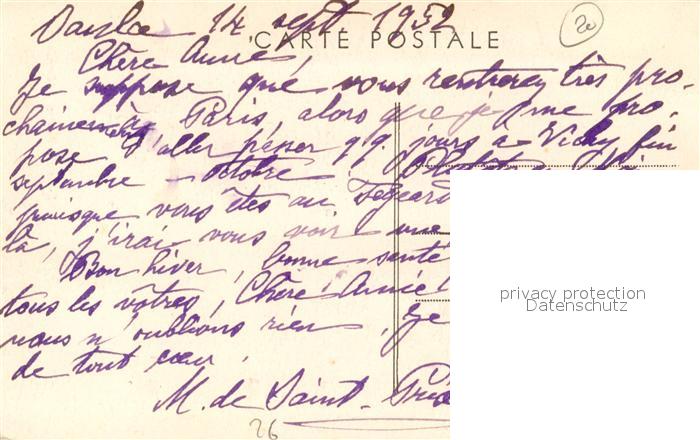 14 sept 1952
CARTE POSTALE
20
Chère Annie,
Je suppose que vous rentrerez très pro-
chainement à Paris, alors que je me pro-
pose d'aller passer qq. jours à Vichy fin
septembre - octobre.
puisque vous êtes au
là, j'irai vous voir une
Bon hiver, bonne santé
tous les vôtres, Chère Annie!
nous n'oublions rien, Je
de tout cœur.
M. de Saint-
26
privacy protection
Datenschutz